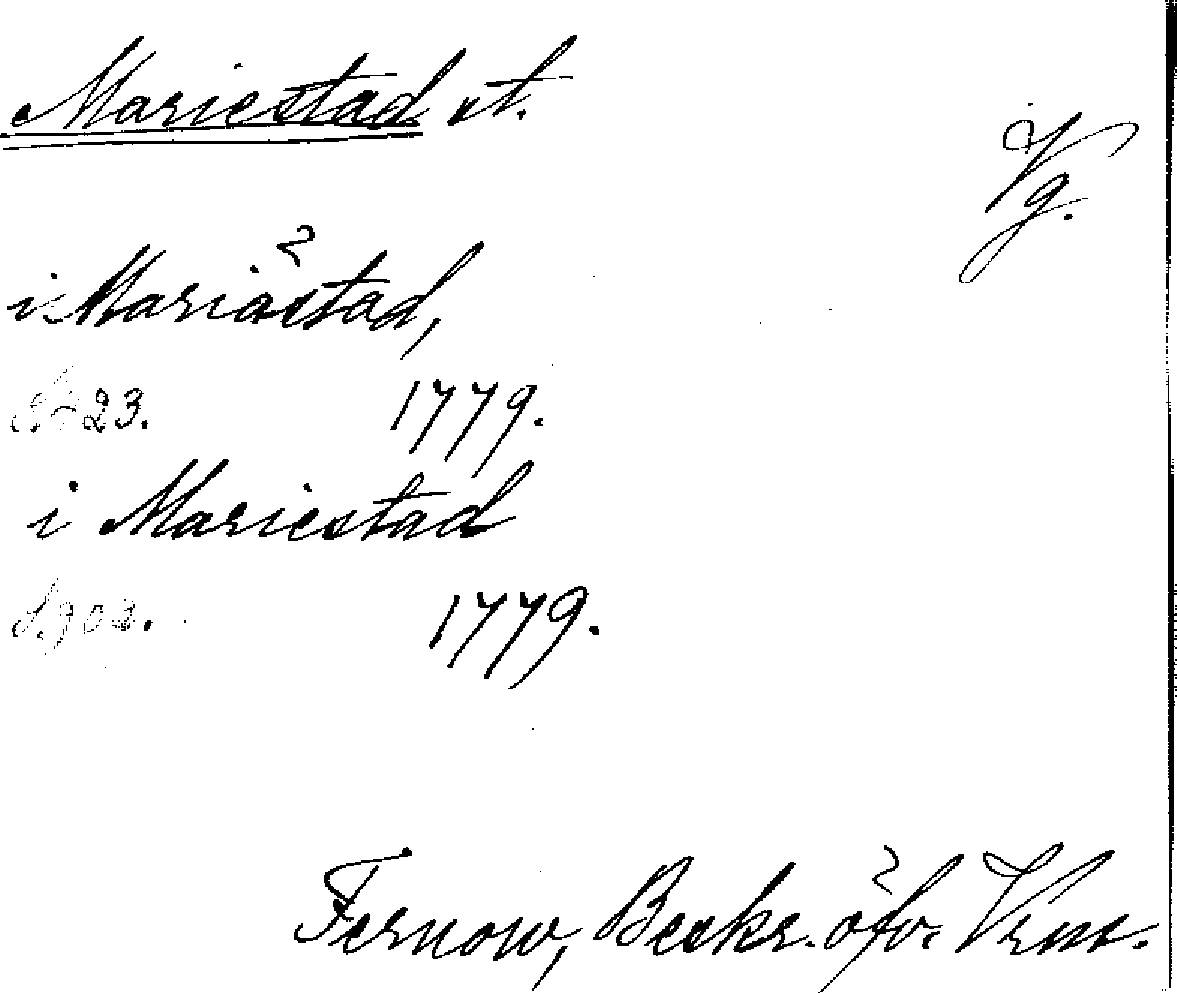 Mariestad st.
Vg.
i Mariästad,
S. 23. 1779.
i Mariestad
S. 303. 1779.
Fernow, Beskr. öfv. Vrml.